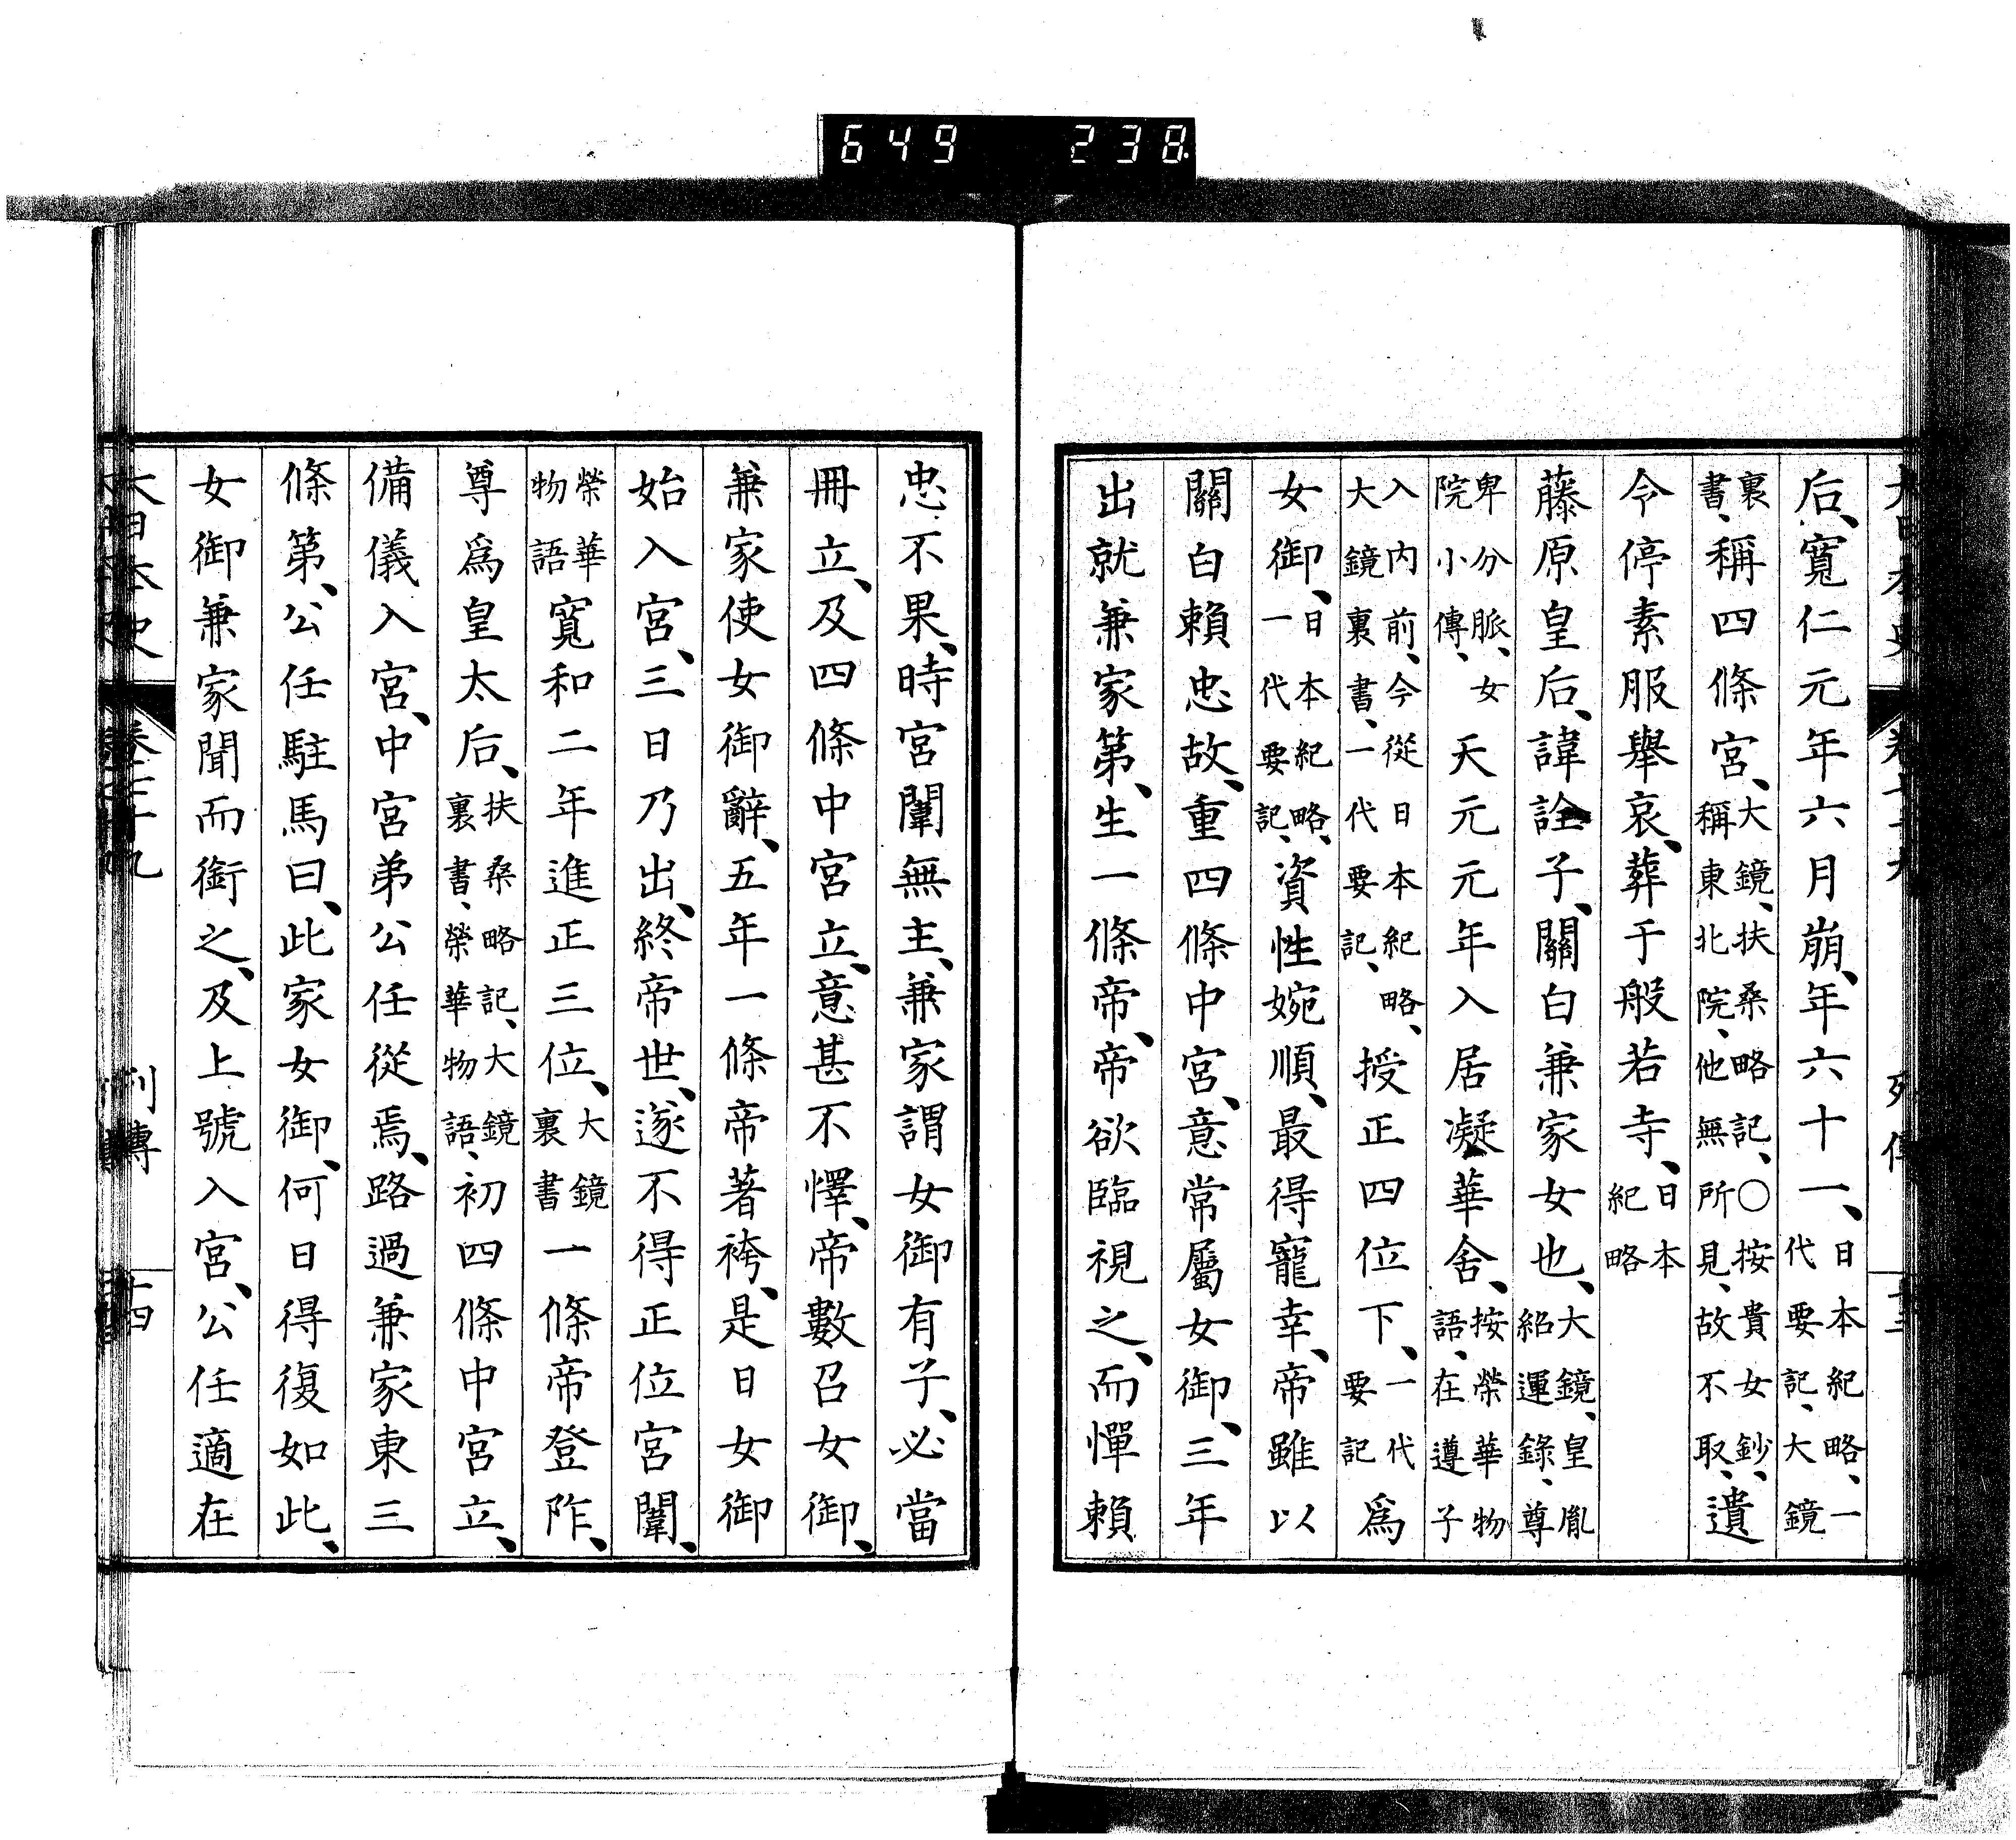 后、寬仁元年六月崩、年六十一、日本紀略、一代要記、大鏡
裏書、稱四條宮、大鏡、扶桑略記、○按貴女鈔、稱東北院、他無所見、故不取、遺
令停素服舉哀、葬于般若寺、日本紀略
藤原皇后、諱詮子、關白兼家女也、大鏡、皇胤紹運錄、尊
卑分脈、女院小傳、天元元年入居凝華舍、按榮華物語、在遵子
入内前、今從日本紀略、大鏡裏書、一代要記、授正四位下、一代要記爲
女御、日本紀略、一代要記、資性婉順、最得寵幸、帝雖以
關白賴忠故、重四條中宮、意常屬女御、三年
出就兼家第、生一條帝、帝欲臨視之、而憚賴
忠不果、時宮闈無主、兼家謂女御有子、必當
冊立、及四條中宮立、意甚不懌、帝數召女御、
兼家使女御辭、五年一條帝著袴、是日女御
始入宮、三日乃出、終帝世、遂不得正位宮闈、
榮華物語寬和二年進正三位、大鏡裏書一條帝登阼、
尊爲皇太后、扶桑略記、大鏡裏書、榮華物語、初四條中宮立、
備儀入宮、中宮弟公任從焉、路過兼家東三
條第、公任駐馬曰、此家女御、何日得復如此、
女御兼家聞而銜之、及上號入宮、公任適在
大日本史 卷七十九 列傳 十四